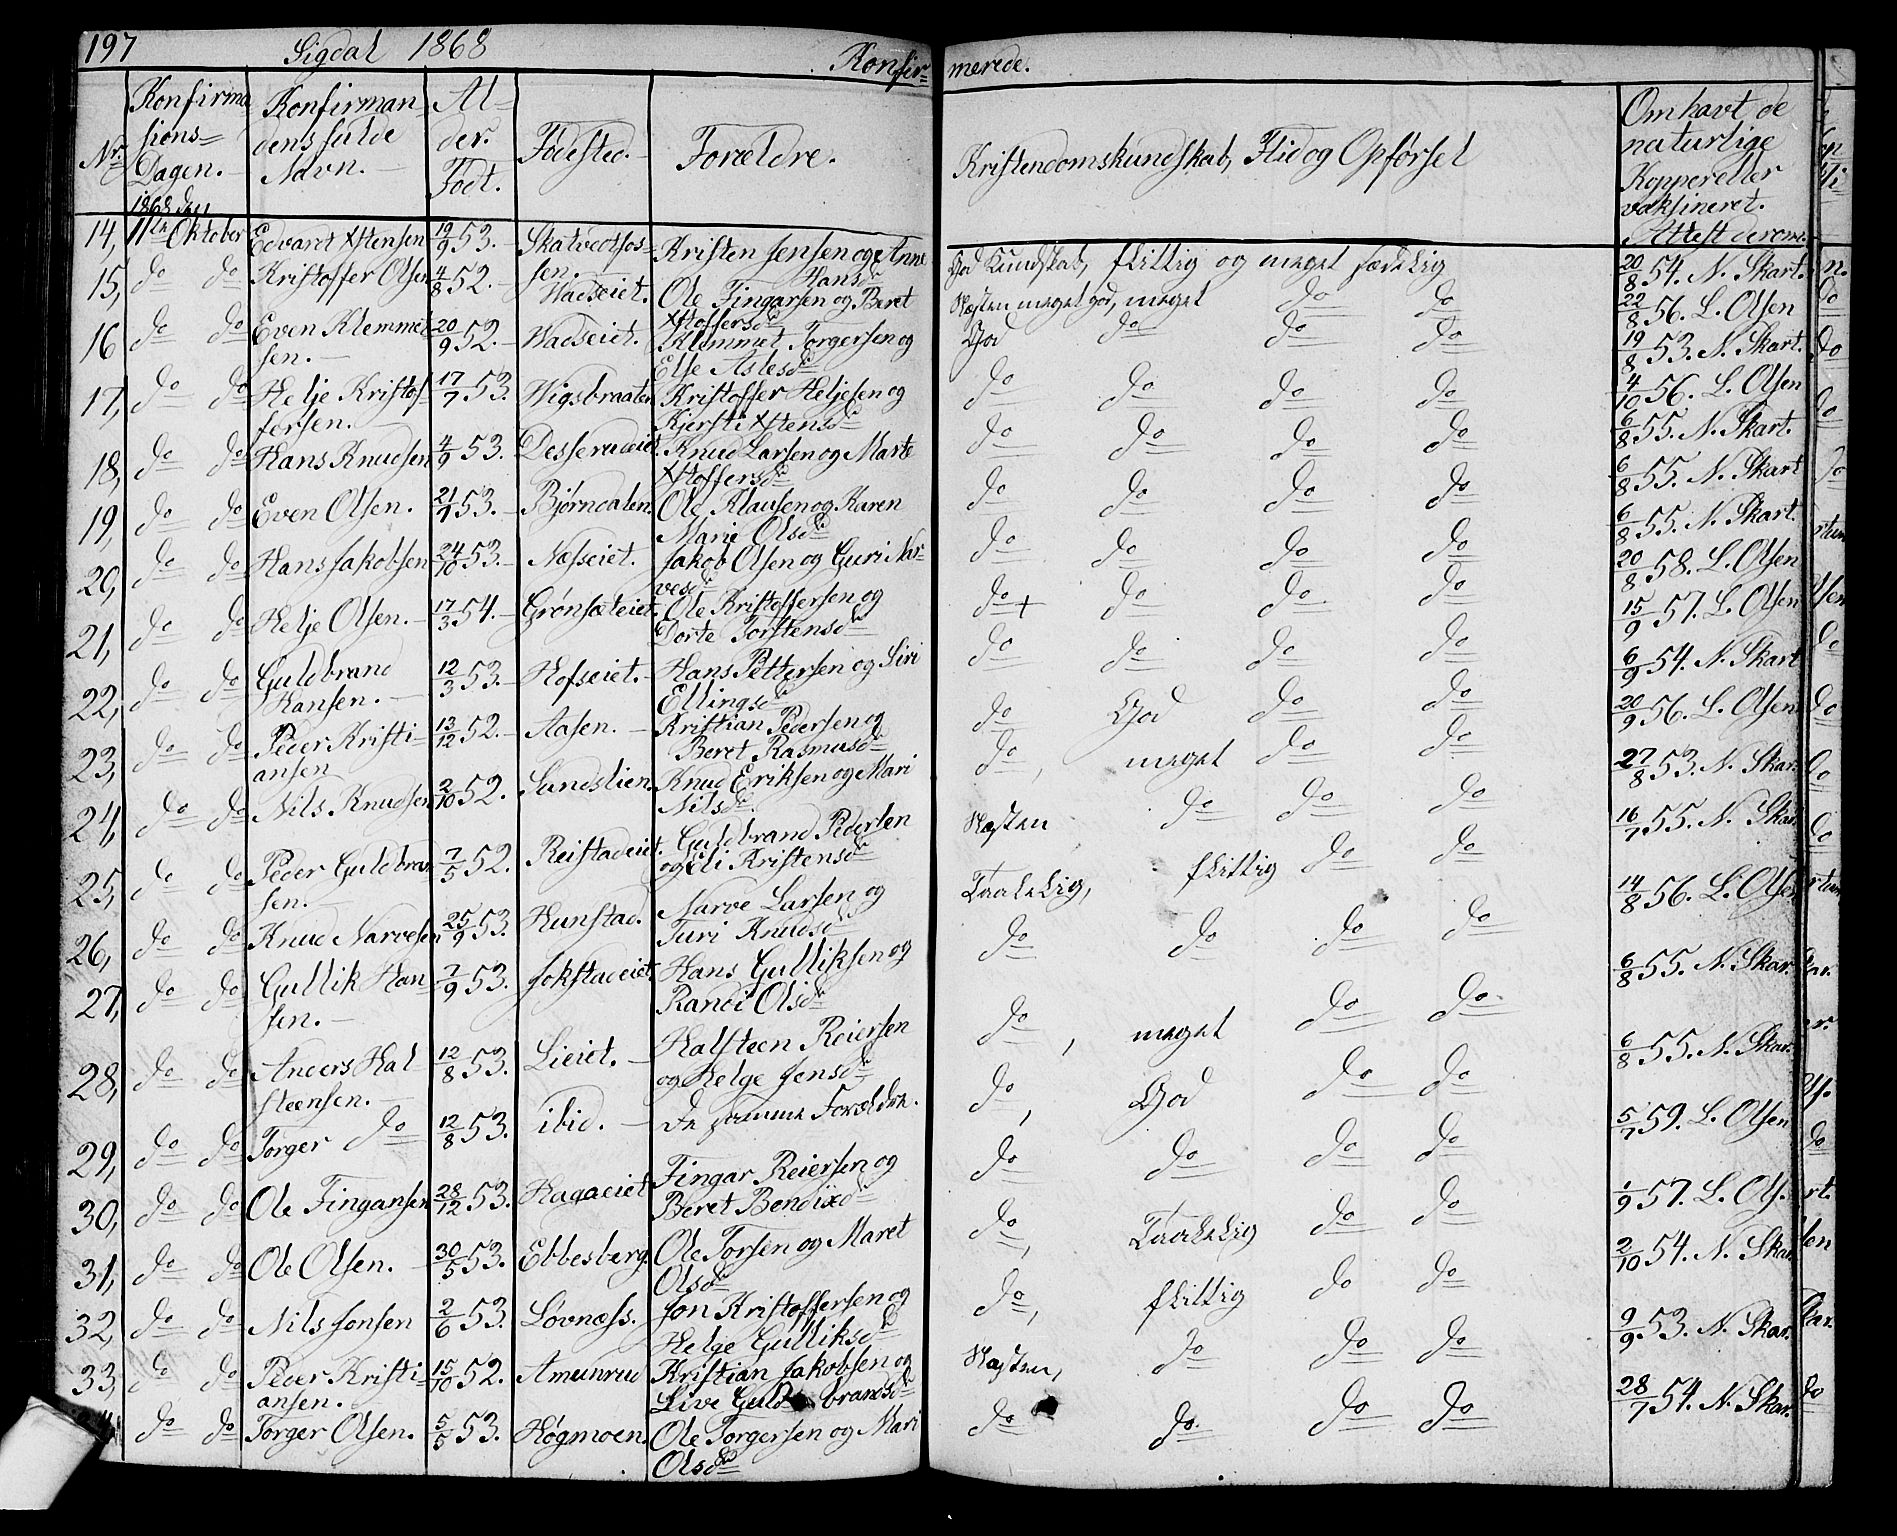 197 Sigdal 1868 Konfir= merede.
Nr. Konfirma sions= Dagen. 1868 den Konfirman dens fulde Navn. Al= der. Født. Fødested. Forældre. Kristendomskundskab, Flid og Opførsel Om havt de naturlige Kopper eller vaksineret. Attest derom.
14, 11te Oktober Edvard Xstensen 19/9 53. Skatvedtfos= sen. Kristen Jensen og Anne Hansd. God Kundskab, flittig og meget sædelig 20/8 54. N. Skart.
15, do do Kristoffer Olsen 4/8 52. Wadseiet. Ole Fingarsen og Beret Xstoffersd. Næsten meget god, meget do do 22/8 56. L. Olsen
16 do do Even Klemmet sen. 20/9 52. Wadseiet. Klemmet Torgersen og Else Aslesd. God do do do 19/8 53. N. Skart.
17, do do Helje Kristof= fersen. 17/7 53. Wigsbraaten Kristoffer Heljesen og Kjersti Xstensd. do do do do 4/10 56. L. Olsen
18, do do Hans Knudsen 4/9 53. Knud Larsen og Marte Xstoffersd. do do do do 6/8 55. N. Skart.
19, do do Even Olsen. 53. Bjørndalen. Ole Klausen og Karen Marie Olsd. do do do do 6/8 55. N. Skart
20, do do Hans Jakobsen 24/10 53. Næsseiet. Jakob Olsen og Guri Nar= vesd. do do do do 6/8 55. N. Skart.
21, do do Helje Olsen. 17/3 54. Grønsæteiet. Ole Kristoffersen og Dorte Torstensd. do+ do do do 20/8 58. L. Olsen
22, do do Guldbrand Hansen. 12/3 53. Hofseiet. Hans Pettersen og Siri Ellingsd. do do do do 15/9 57. L. Olsen
23, do do Peder Kristi= ansen 13/12 52. Aasen. Kristian Pedersen og Beret Rasmusd. do God do do 6/9 54. N. Skart
24, do do Nils Knudsen 2/10 52. Sundslien. Knud Eriksen og Mari Nilsd. do, meget do do 20/9 56. L. Olsen
25, do do Peder Guldbran sen. 7/5 52. Reistadeiet. Guldbrand Pedersen og Eli Kristensd. Næsten do do do 27/8 53. N. Skar.
26, do do Knud Narvesen 25/9 53. Hunstad. Narve Larsen og Turi Knudsd. Taalelig, flittig do do 16/7 55. N. Skar.
27, do do Gullik Han= sen. 7/9 53. Jokstadeiet. Hans Gulliksen og Randi Olsd. do do do do 14/8 56. L. Olsen
28, do do Anders Hal steensen. 12/8 53. Lieiet. Halsteen Reiersen og Helge Jensd. do, meget do do 6/8 55. N. Skar.
29, do do Torger do 12/8 53. ibid. De samme Forældre. do, God do do 6/8 55. N. Skar.
30, do do Ole Fingarsen 28/12 53. Hagaeiet Fingar Reiersen og Beret Bendixd. do do do do 5/7 59. L. Olsen
31, do do Ole Olsen. 30/5 53. Ebbesberg. Ole Torsen og Maret Olsd. do, Taalelig do do 1/9 57. L. Ols.
32, do do Nils Jonsen 2/6 53. Løvnæss. Jon Kristoffersen og Helge Gulliksd. do, flittig do do 2/10 54. N. Skar.
33, do do Peder Kristi= ansen. 15/10 52. Amunrud Kristian Jakobsen og Live Guldbrandsd. Næsten, do do do 9/9 53. N. Skar.
do do Torger Olsen. 5/5 53. Høgmoen. Ole Torgersen og Mari Olsd. do do. do do 28/7 54. N. Skar.